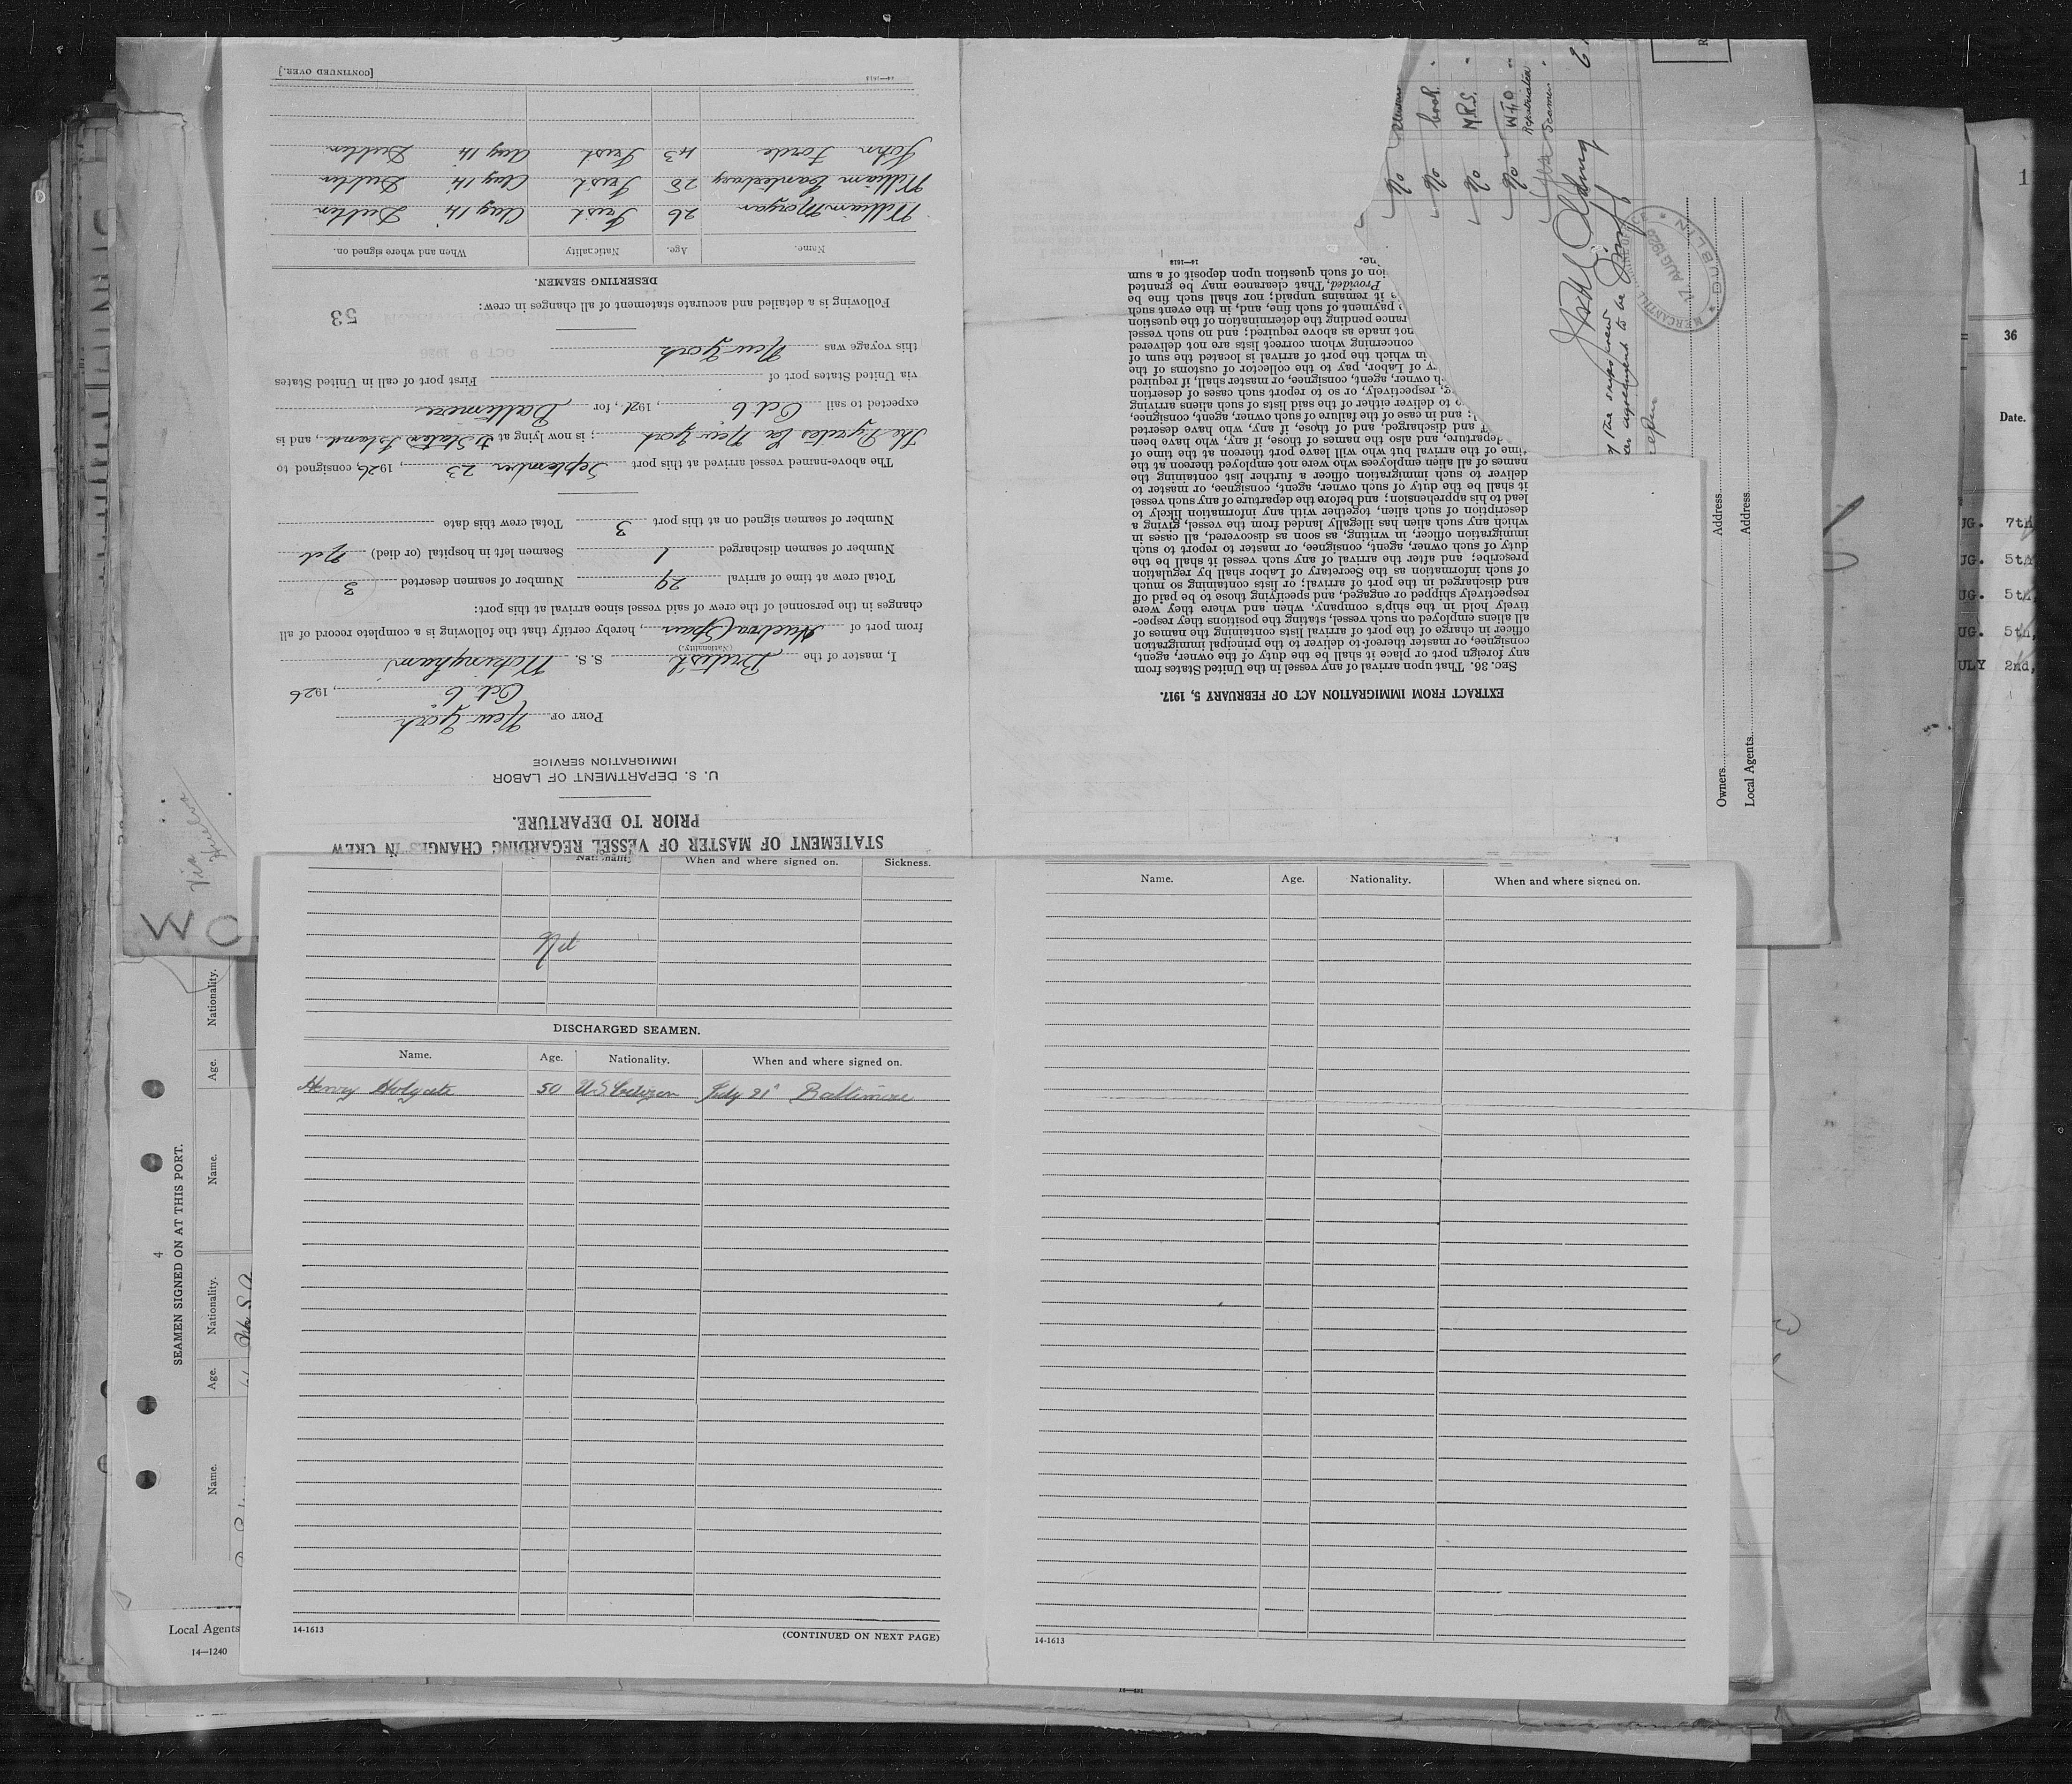 STATEMENT OF MASTER OF VESSEL REGARDING CHANGES IN CREW
PRIOR TO DEPARTURE.
U. S. DEPARTMENT OF LABOR
IMMIGRATION SERVICE
PORT OF New York
Oct 6, 1926
I, master of the British S. S.
(Nationality.)
from port of Huelva Spain, hereby certify that the following is a complete record of all
changes in the personnel of the crew of said vessel since arrival at this port:
Total crew at time of arrival 29 Number of seamen deserted 3
Number of seamen discharged 1 Seamen left in hospital (or died) Nil
Number of seamen signed on at this port 3 Total crew this date
The above-named vessel arrived at this port September 23, 1926, consigned to
The Pyrites Co New York; is now lying at Staten Island, and is
expected to sail Oct 6, 1926, for Baltimore
via United States port of First port of call in United States
this voyage was New York
OCT 9 1926
Following is a detailed and accurate statement of all changes in crew:
53
DESERTING SEAMEN.
Name. Age. Nationality When and where signed on.
William Morgan 26 Irish Aug 14 Dublin
William Canterbury 28 Irish Aug 14 Dublin
John Forde 43 Irish Aug 14 Dublin
14—1613 [CONTINUED OVER.]
EXTRACT FROM IMMIGRATION ACT OF FEBRUARY 5, 1917.
SEC. 36. That upon arrival of any vessel in the United States from
any foreign port or place it shall be the duty of the owner, agent,
consignee, or master thereof to deliver to the principal immigration
officer in charge of the port of arrival lists containing the names of
all aliens employed on such vessel, stating the positions they respec-
tively hold in the ship's company, when and where they were
respectively shipped or engaged, and specifying those to be paid off
and discharged in the port of arrival; or lists containing so much
of such information as the Secretary of Labor shall by regulation
prescribe; and after the arrival of any such vessel it shall be the
duty of such owner, agent, consignee, or master to report to such
immigration officer, in writing, as soon as discovered, all cases in
which any such alien has illegally landed from the vessel, giving a
description of such alien, together with any information likely to
lead to his apprehension; and before the departure of any such vessel
it shall be the duty of such owner, agent, consignee, or master to
deliver to such immigration officer a further list containing the
names of all alien employees who were not employed thereon at the
time of the arrival but who will leave port thereon at the time of
departure, and also the names of those, if any, who have been
and discharged, and of those, if any, who have deserted
; and in case of the failure of such owner, agent, consignee,
to deliver either of the said lists of such aliens arriving
, respectively, or so to report such cases of desertion
owner, agent, consignee, or master shall, if required
of Labor, pay to the collector of customs of the
in which the port of arrival is located the sum of
concerning whom correct lists are not delivered
not made as above required; and no such vessel
rance pending the determination of the question
payment of such fine, and, in the event such
it remains unpaid; nor shall such fine be
Provided, That clearance may be granted
ion of such question upon deposit of a sum
ne.
14—1613
% book.
% M.R.S.
% W.I.O
Repatriation
Seamen
an agreement to be
MERCANTILE MARINE OFFICE
7 AUG 1926
DUBLIN
Owners Address
Local Agents Address
36
Date.
UG. 7th
UG. 5th
UG. 5th,
UG. 5th,
JULY 2nd,
Via
Huelva
W O
Nationality When and where signed on. Sickness.
Nil
DISCHARGED SEAMEN.
Name. Age. Nationality. When and where signed on.
Henry Holgate 50 U.S Citizen July 21st Baltimore
14-1613
(CONTINUED ON NEXT PAGE)
Name. Age. Nationality. When and where signed on.
14-1613
4
SEAMEN SIGNED ON AT THIS PORT.
Name. Age. Nationality. Name. Age. Nationality.
Local Agents
14—1240